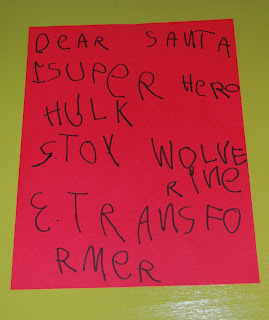 DEAR SANTA
1SUPeR HeRO
HULK
2.TOY WOLVE
RINe
3.TRANSFO
RMeR